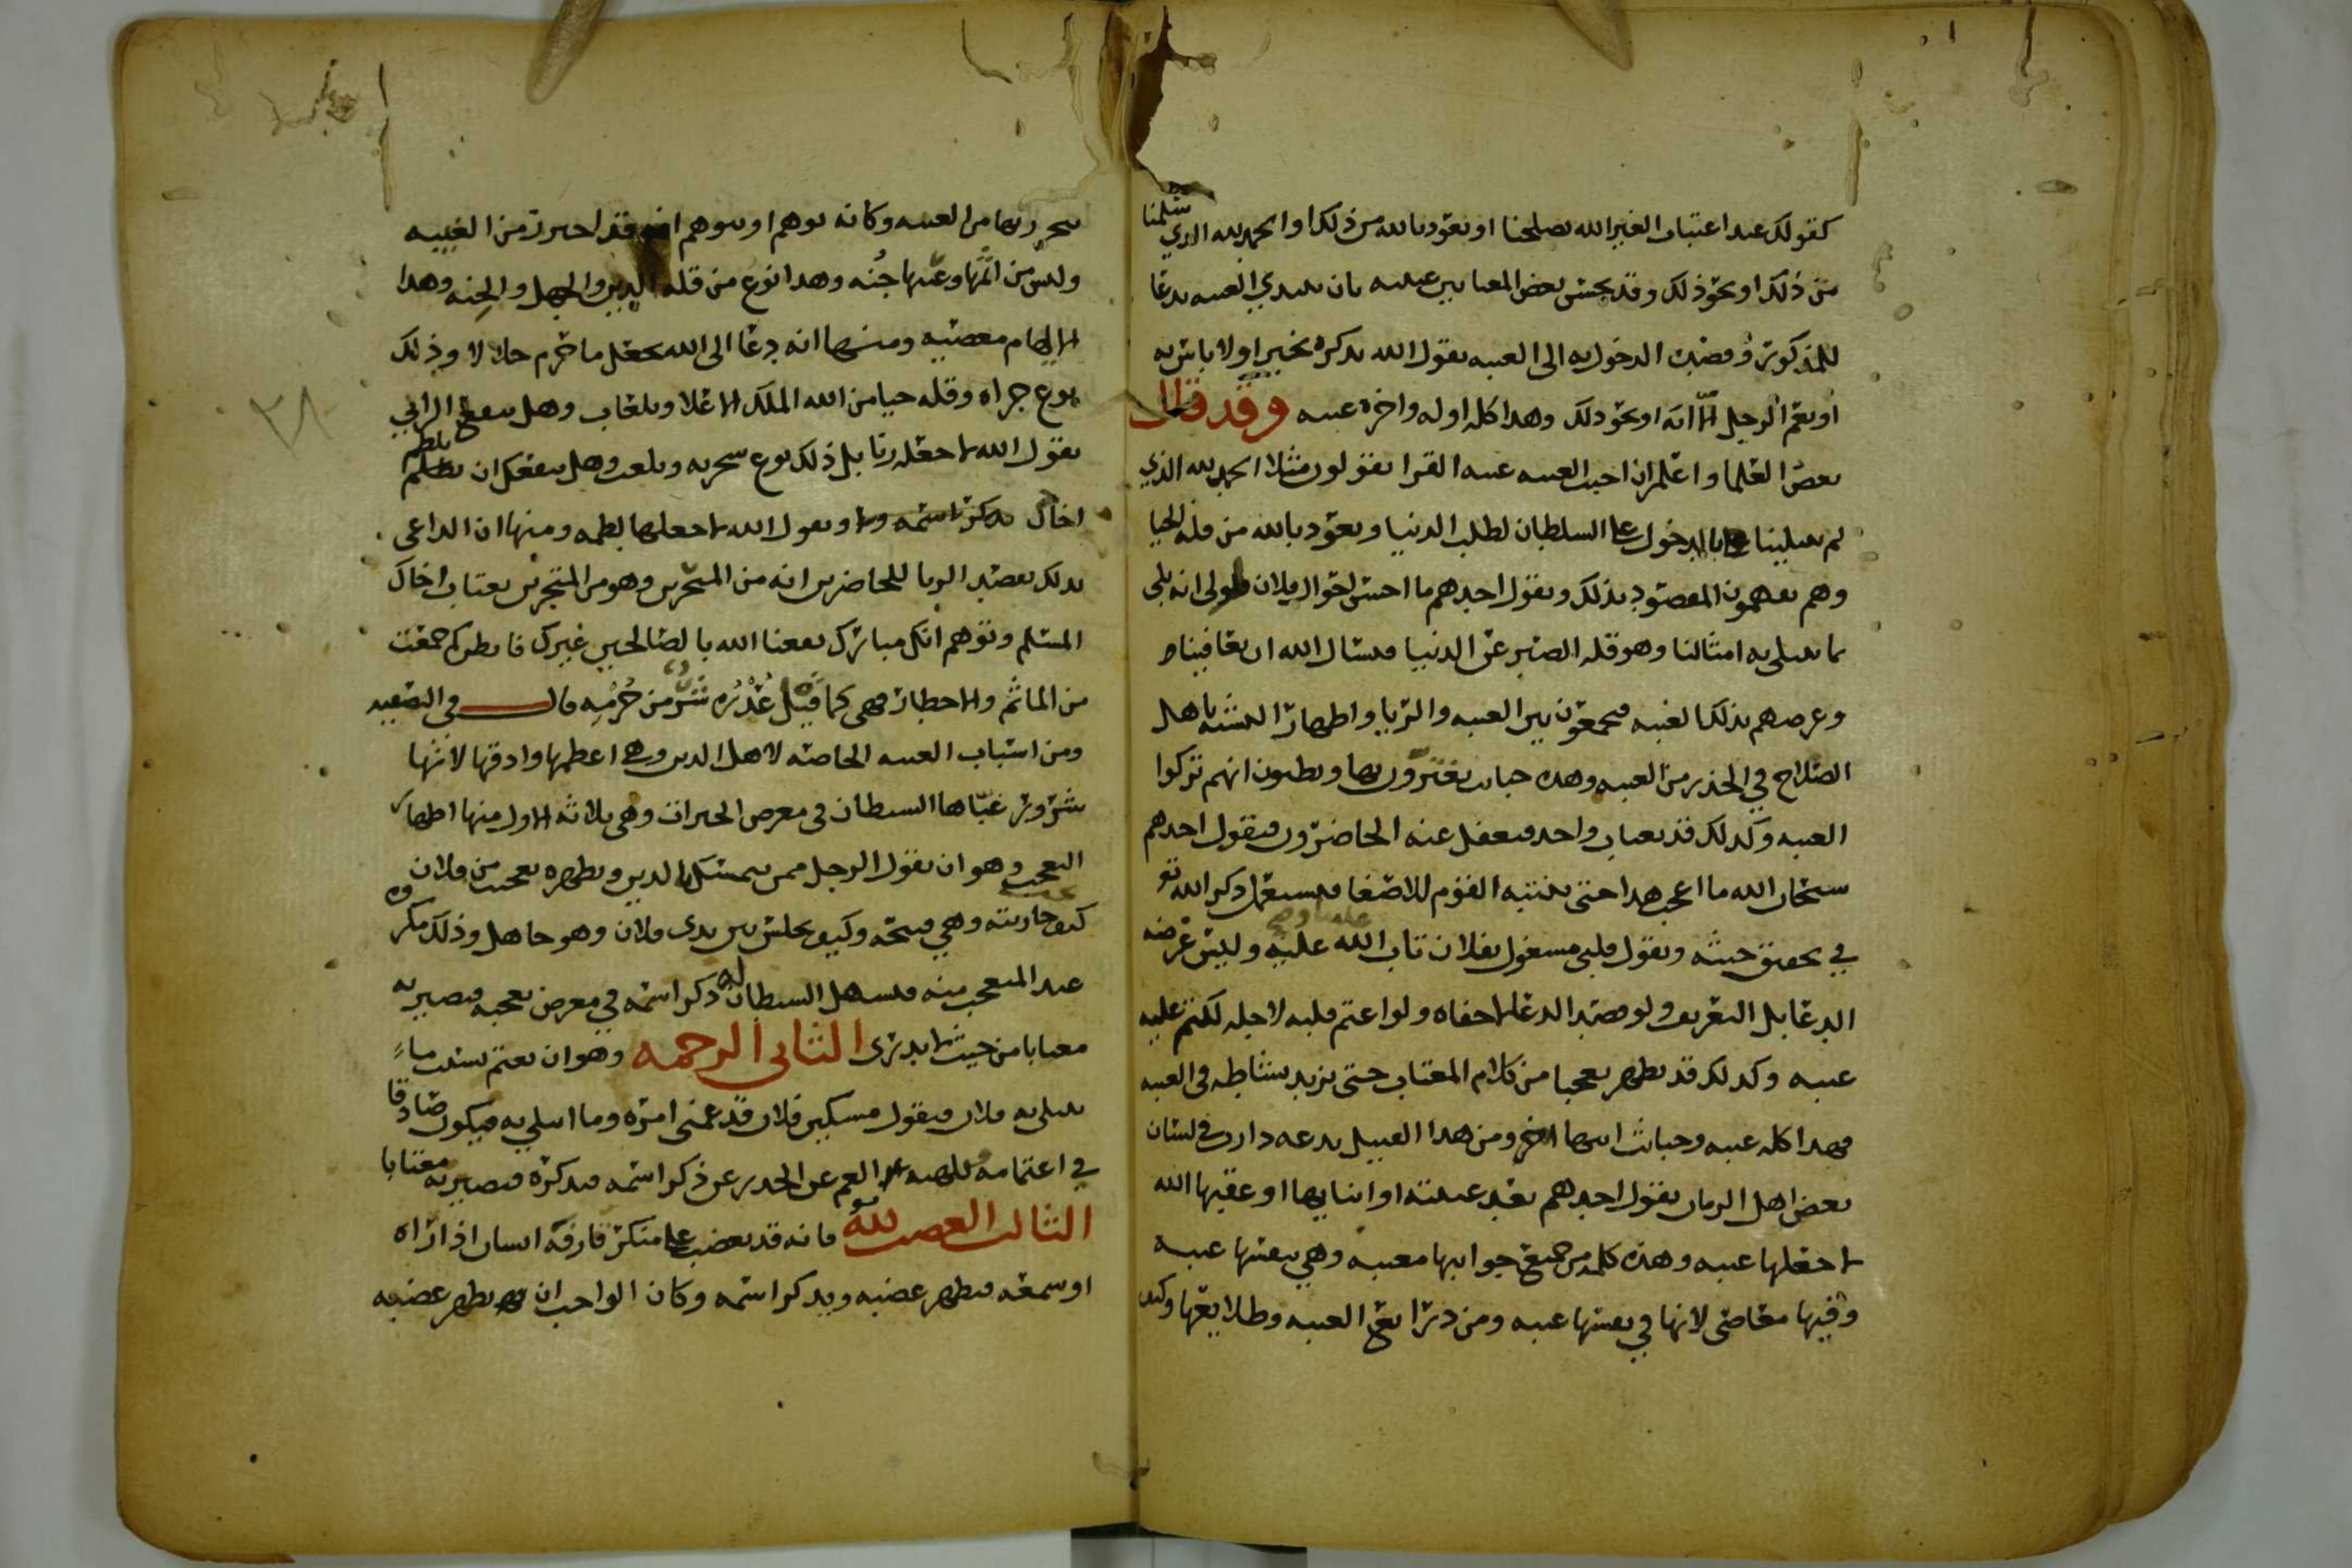 كقولك عند اغتياب الغير الله يصلحنا او نعوذ بالله من ذلك او الحمد لله الذي سلمنا
من ذلك او نحو ذلك وقد يحسن بعض المغتابين غيبته بان يبتدي الغيبه بدعا
للمذكور وقصده الدخول به الى الغيبه يقول الله يذكره بخير او لا باس به
او نعم الرجل الا انه او نحو ذلك وهذا كله اوله واخره غيبه وقد قال
بعض العلما واعلم ان اخبث الغيبه غيبه القرا يقولون مثلا الحمد لله الذي
لم يبتلينا بالدخول على السلطان لطلب الدنيا ونعوذ بالله من قله الحيا
وهم يفهمون المقصود بذلك ويقول احدهم ما احسن احوال فلان لولى انه بلى
بما يبتلى به امثالنا وهو قله الصبر عن الدنيا فنسال الله ان يعافينا
وغرضهم بذلك الغيبه فيجمعون بين الغيبه والريا واظهار التشبه باهل
الصلاح في الحذر من الغيبه وهذه خبايث يغترون بها ويظنون انهم تركوا
الغيبه وكذلك قد يغتاب واحد فيغفل عنه الحاضرون فيقول احدهم
سبحان الله ما اعجب هذا حتى ينتبه القوم للاصغا فيستعمل ذكر الله
في تحقيق خبثه ويقول قلبي مشغول بفلان تاب الله علينا وعليه وليس غرضه
الدعا بل التعريف ولو قصد الدعا لاخفاه ولو اغتم قلبه لاجله لكتم عليه
عيبه وكذلك قد يظهر تعجبا من كلام المغتاب حتى يزيد نشاطه في الغيبه
فهذا كله غيبه وخبايث ومن هذا القبيل بدعه دارت في لسان
بعض اهل الزمان يقول احدهم بعد غيبته او اثنايها او عقيبها الله
لا جعلها غيبه وهذه كلمه من جميع جوانبها معيبه وهي بعينها غيبه
وفيها معاصى لانها في بعينها غيبه ومن ذرايع الغيبه وطلايعها وكيف
وليس من اثمها وعيبها جنه وهذا نوع من قله الدين والجهل والجنه وهذا
الايهام معصيه ومنها انه دعا الى الله بجعل ما حرم حلالا وذلك
نوع جراه وقله حيا من الله الملك الاعلا وتلعاب وهل ينفع الزاني
يقول الله لا جعله زنا بل ذلك نوع سخريه وتلعب وهل ينفعك ان تلطم
اخاك وتقول الله لا جعلها لطمه ومنها ان الداعى
بذلك يقصد الريا للحاضرين انه من المتحرين وهو من المتجرين يغتاب اخاك
المسلم وتوهم انك مبارك نفعنا الله بالصالحين غيرك فانظر كم جمعت
من الماثم والاخطار فهى كما قيل عذره شر من جرمه قال في التصفيه
ومن اسباب الغيبه الخاصه لاهل الدين وهي اعظمها وادقها لانها
شرور عباها الشيطان في معرض الخيرات وهي ثلاثه الاول منها اظهار
التعجب وهو ان يقول الرجل ممن يتمسك بالدين ويظهره تعجبت من فلان
كيف يحب جاريته وهي قبيحه وكيف يجلس بين يدى فلان وهو جاهل وذلك مكروه
عند المتعجب منه فيسهل الشيطان له ذكر اسمه في معرض تعجبه فيصير به
مغتابا من حيث لا يدرى الثاني الرحمه وهو ان يغتم بسبب ما
يبتلى به فلان فيقول مسكين فلان قد غمني امره وما ابتلي به فيكون صادقا
في اغتمامه فيلهيه الغم عن الحذر عن ذكر اسمه فيذكره فيصير به مغتابا
الثالث الغضب لله فانه قد يغضب على منكر قارفه انسان اذا راه
او سمعه فيظهر غضبه ويذكر اسمه وكان الواجب ان يظهر غضبه
٣٨